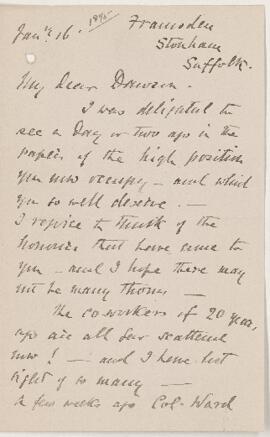 Framsden
Stonham
Suffolk.
Jany 16. 1895
My dear Dawson.
I was delighted to
see a day or two ago in the
papers of the high position
you now occupy - and which
you so well deserve. -
I rejoice to think of the
honours that have come to
you - and I hope there may
not be many thorns -
The co-workers of 20 years
ago are all far scattered
now! - and I have lost
sight of so many -
A few weeks ago Col. Ward